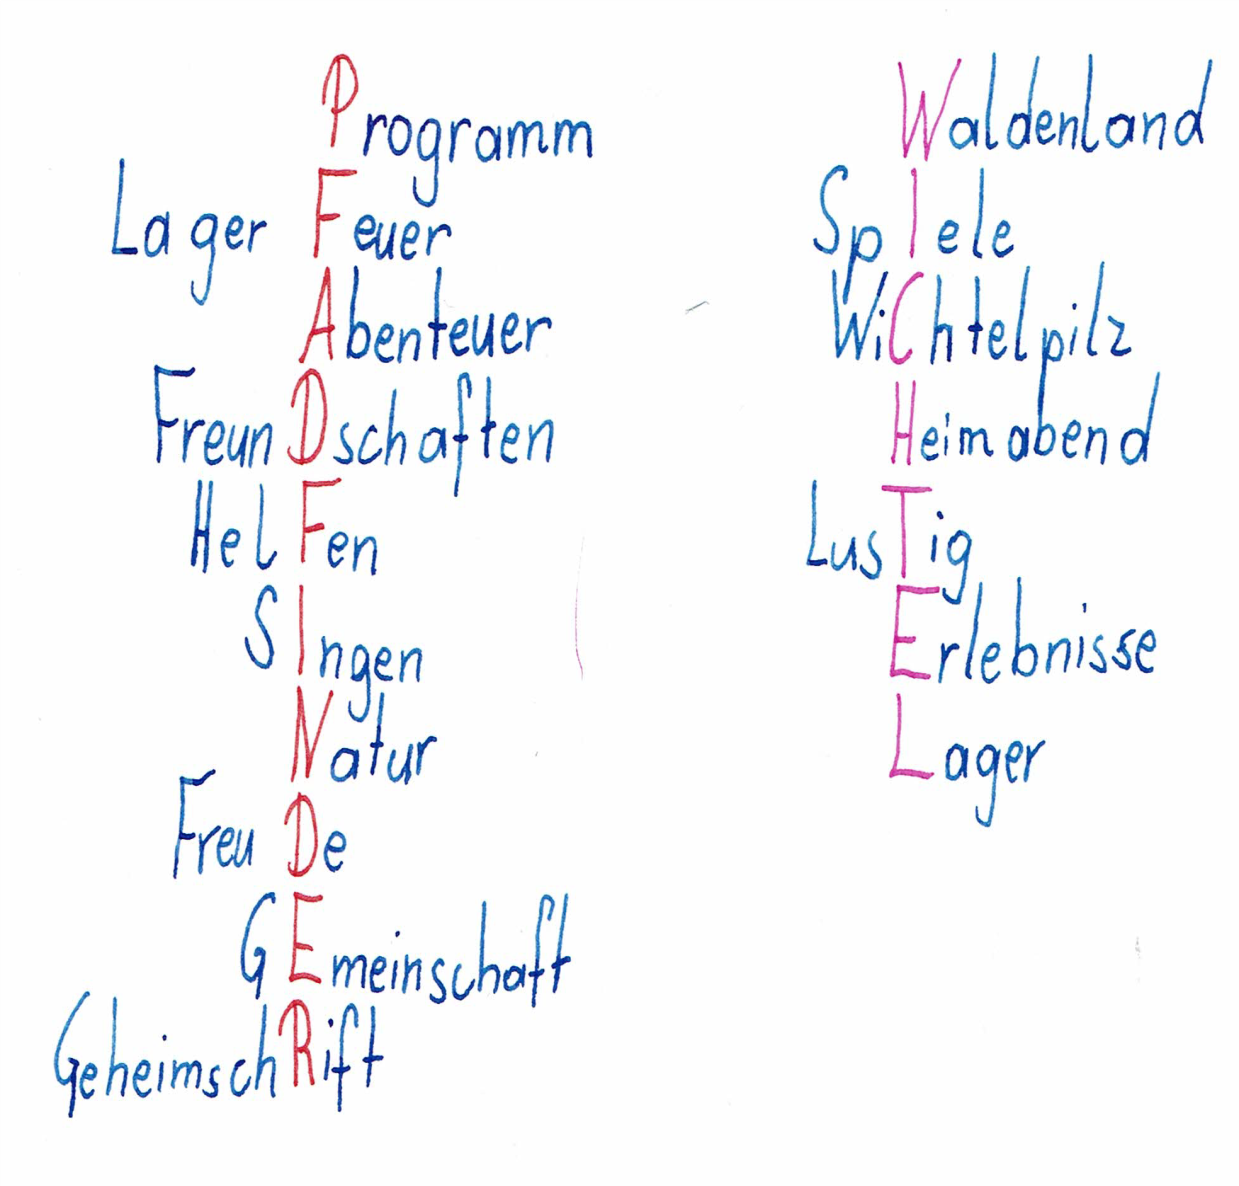 Programm
Lager Feuer
Abenteuer
FreunDschaften
HelFen
SIngen
Natur
FreuDe
GEmeinschaft
GeheimschRift
Waldenland
SpIele
WiChtelpilz
Heimabend
LusTig
Erlebnisse
Lager